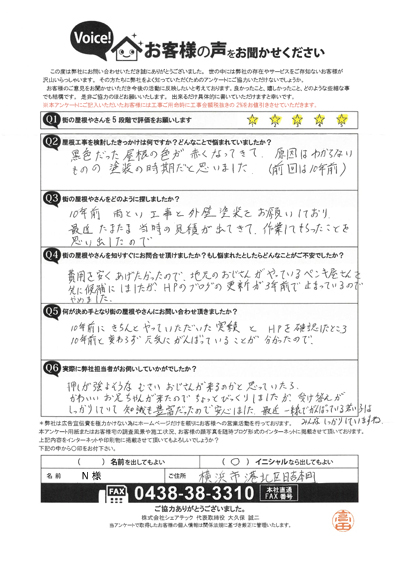 Voice!
お客様の声をお聞かせください
この度は弊社にお問い合わせいただき誠にありがとうございました。世の中には弊社の存在やサービスをご存知ないお客様が
沢山いらっしゃいます。その方たちに弊社をよく知っていただくためのアンケートにご協力いただけないでしょうか。
お客様のご意見をお聞かせいただき今後の活動に反映したいと考えております。良かったこと、嬉しかったこと、どのような些細な事
でも結構です。是非ご協力のほどお願いいたします。出来るだけ具体的に書いていただけますと幸いです。
※本アンケートにご記入いただいたお客様には工事ご所合時に工事金額税抜きの2%をお値引きさせていただきます。
Q1 街の屋根やさんを5段階で評価をお願いします
Q2 屋根工事を検討したきっかけは何ですか?どんなことで悩まれていましたか?
黒色だった屋根の色が赤くなってきて、原因はわからない
ものの塗装の時期だと思いました。(前回は10年前)
Q3 街の屋根やさんをどのように探しましたか?
10年前 雨とい工事と外壁塗装をお願いしており、
最近たまたま当時の見積が出てきて、作業してもらったことを
思い出したので
Q4 街の屋根やさんを知りすぐにお問合せ頂けましたか?もし悩まれたとしたらどんなことがご不安でしたか?
費用を安くあげたかったので、地元のおじさんがやっているペンキ屋さんを
先に候補にしましたが、HPのブログの更新が3年前で止まっているので
やめました。
Q5 何が決め手となり街の屋根やさんにお問い合わせ頂きましたか?
10年前にきちんとやっていただいた実績と HPを確認したところ
10年前と変わらず元気にがんばっていることが分かったので、
Q6 実際に弊社担当者がお伺いしていかがでしたか?
押しが強そうな むさいおじさんが来るのかと思っていたら、
かわいいお兄ちゃんが来たのでちょっとびっくりしましたが、受け答えが
しっかりしていて知識も豊富だったので安心しました。最近一様でがんばっている若い方は
みんなしっかりしていますね
※弊社は広告宣伝費を極力かけない為にホームページだけを頼りにお客様への営業活動を行っております。
本アンケート用紙またはお客様宅の調査風景や施工状況、お客様の顔写真を随時ブログ形式でのインターネットに掲載させて頂いております。
上記内容をインターネットや印刷物に掲載させて頂いてもよろしいでしょうか?
下記の中から〇印をお付下さい。
( )名前を出してもよい (○)イニシャルなら出してもよい
名前 N様 ご住所 横浜市港北区日吉本町
FAX 0438-38-3310 本社直通 FAX番号
ご協力ありがとうございました。
株式会社シェアテック 代表取締役 大久保 誠二
当アンケートで取得したお客様の個人情報は関係法規に基づき厳正に管理いたします。